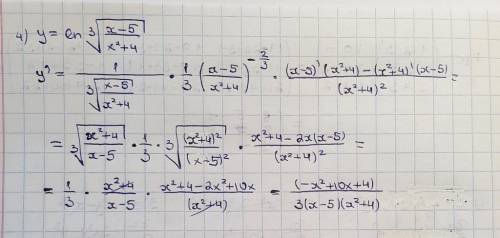 4) y = ln ∛((x-5)/(x²+4))
y' = 1/∛((x-5)/(x²+4)) · 1/3 ((x-5)/(x²+4))^(-2/3) · ((x-5)'(x²+4)-(x²+4)'(x-5))/(x²+4)² =
= ∛((x²+4)/(x-5)) · 1/3 · ∛((x²+4)²/(x-5)²) · (x²+4-2x(x-5))/(x²+4)² =
= 1/3 · (x²+4)/(x-5) · (x²+4-2x²+10x)/(x²+4) = (-x²+10x+4)/(3(x-5)(x²+4))